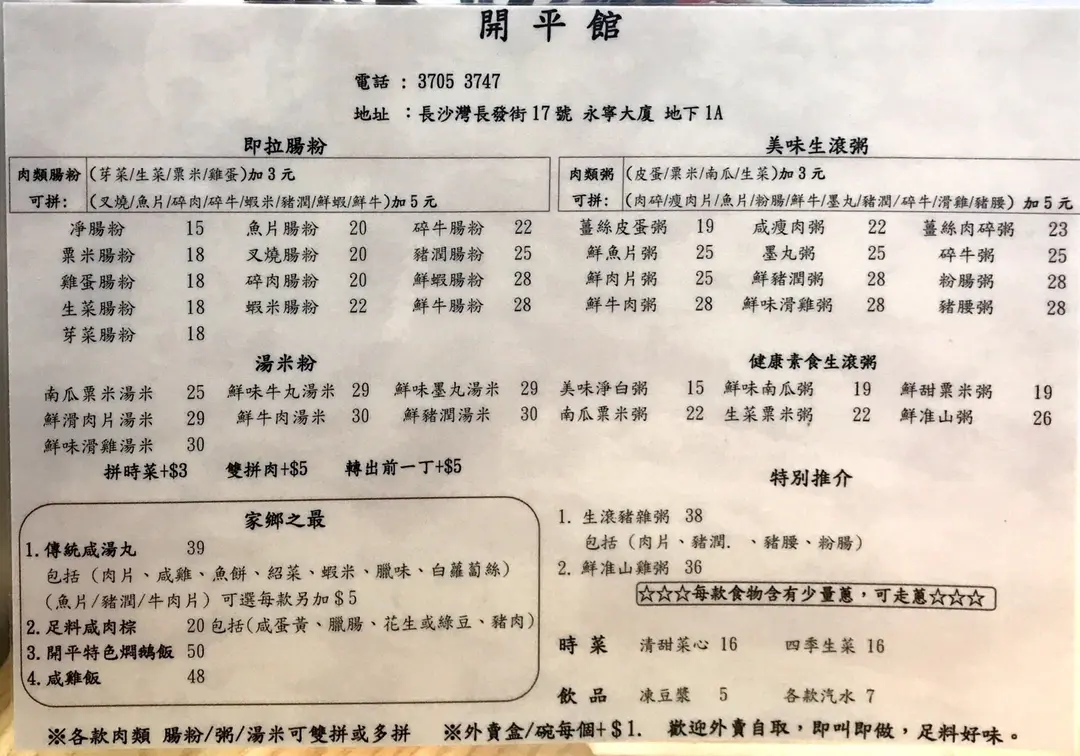 開平館
電話 : 3705 3747
地址 :長沙灣長發街17號 永寧大廈 地下1A
即拉腸粉
肉類腸粉 (芽菜/生菜/粟米/雞蛋)加3元
可拼: (叉燒/魚片/碎肉/碎牛/蝦米/豬潤/鮮蝦/鮮牛)加5元
凈腸粉 15 魚片腸粉 20 碎牛腸粉 22
粟米腸粉 18 叉燒腸粉 20 豬潤腸粉 25
雞蛋腸粉 18 碎肉腸粉 20 鮮蝦腸粉 28
生菜腸粉 18 蝦米腸粉 22 鮮牛腸粉 28
芽菜腸粉 18
湯米粉
南瓜粟米湯米 25 鮮味牛丸湯米 29 鮮味墨丸湯米 29
鮮滑肉片湯米 29 鮮牛肉湯米 30 鮮豬潤湯米 30
鮮味滑雞湯米 30
拼時菜+$3 雙拼肉+$5 轉出前一丁+$5
家鄉之最
1.傳統咸湯丸 39
包括 (肉片、咸雞、魚餅、紹菜、蝦米、臘味、白蘿蔔絲)
(魚片/豬潤/牛肉片) 可選每款另加$5
2.足料咸肉棕 20包括(咸蛋黃、臘腸、花生或綠豆、豬肉)
3.開平特色燜鵝飯 50
4.咸雞飯 48
美味生滾粥
肉類粥 (皮蛋/粟米/南瓜/生菜)加3元
可拼: (肉碎/瘦肉片/魚片/粉腸/鮮牛/墨丸/豬潤/碎牛/滑雞/豬腰) 加5元
薑絲皮蛋粥 19 咸瘦肉粥 22 薑絲肉碎粥 23
鮮魚片粥 25 墨丸粥 25 碎牛粥 25
鮮肉片粥 25 鮮豬潤粥 28 粉腸粥 28
鮮牛肉粥 28 鮮味滑雞粥 28 豬腰粥 28
健康素食生滾粥
美味淨白粥 15 鮮味南瓜粥 19 鮮甜粟米粥 19
南瓜粟米粥 22 生菜粟米粥 22 鮮准山粥 26
特別推介
1. 生滾豬雜粥 38
包括 (肉片、豬潤. 、豬腰、粉腸)
2. 鮮准山雞粥 36
☆☆☆每款食物含有少量蔥,可走蔥☆☆☆
時菜 清甜菜心 16 四季生菜 16
飲品 凍豆漿 5 各款汽水 7
※各款肉類 腸粉/粥/湯米可雙拼或多拼 ※外賣盒/碗每個+$1. 歡迎外賣自取,即叫即做,足料好味。